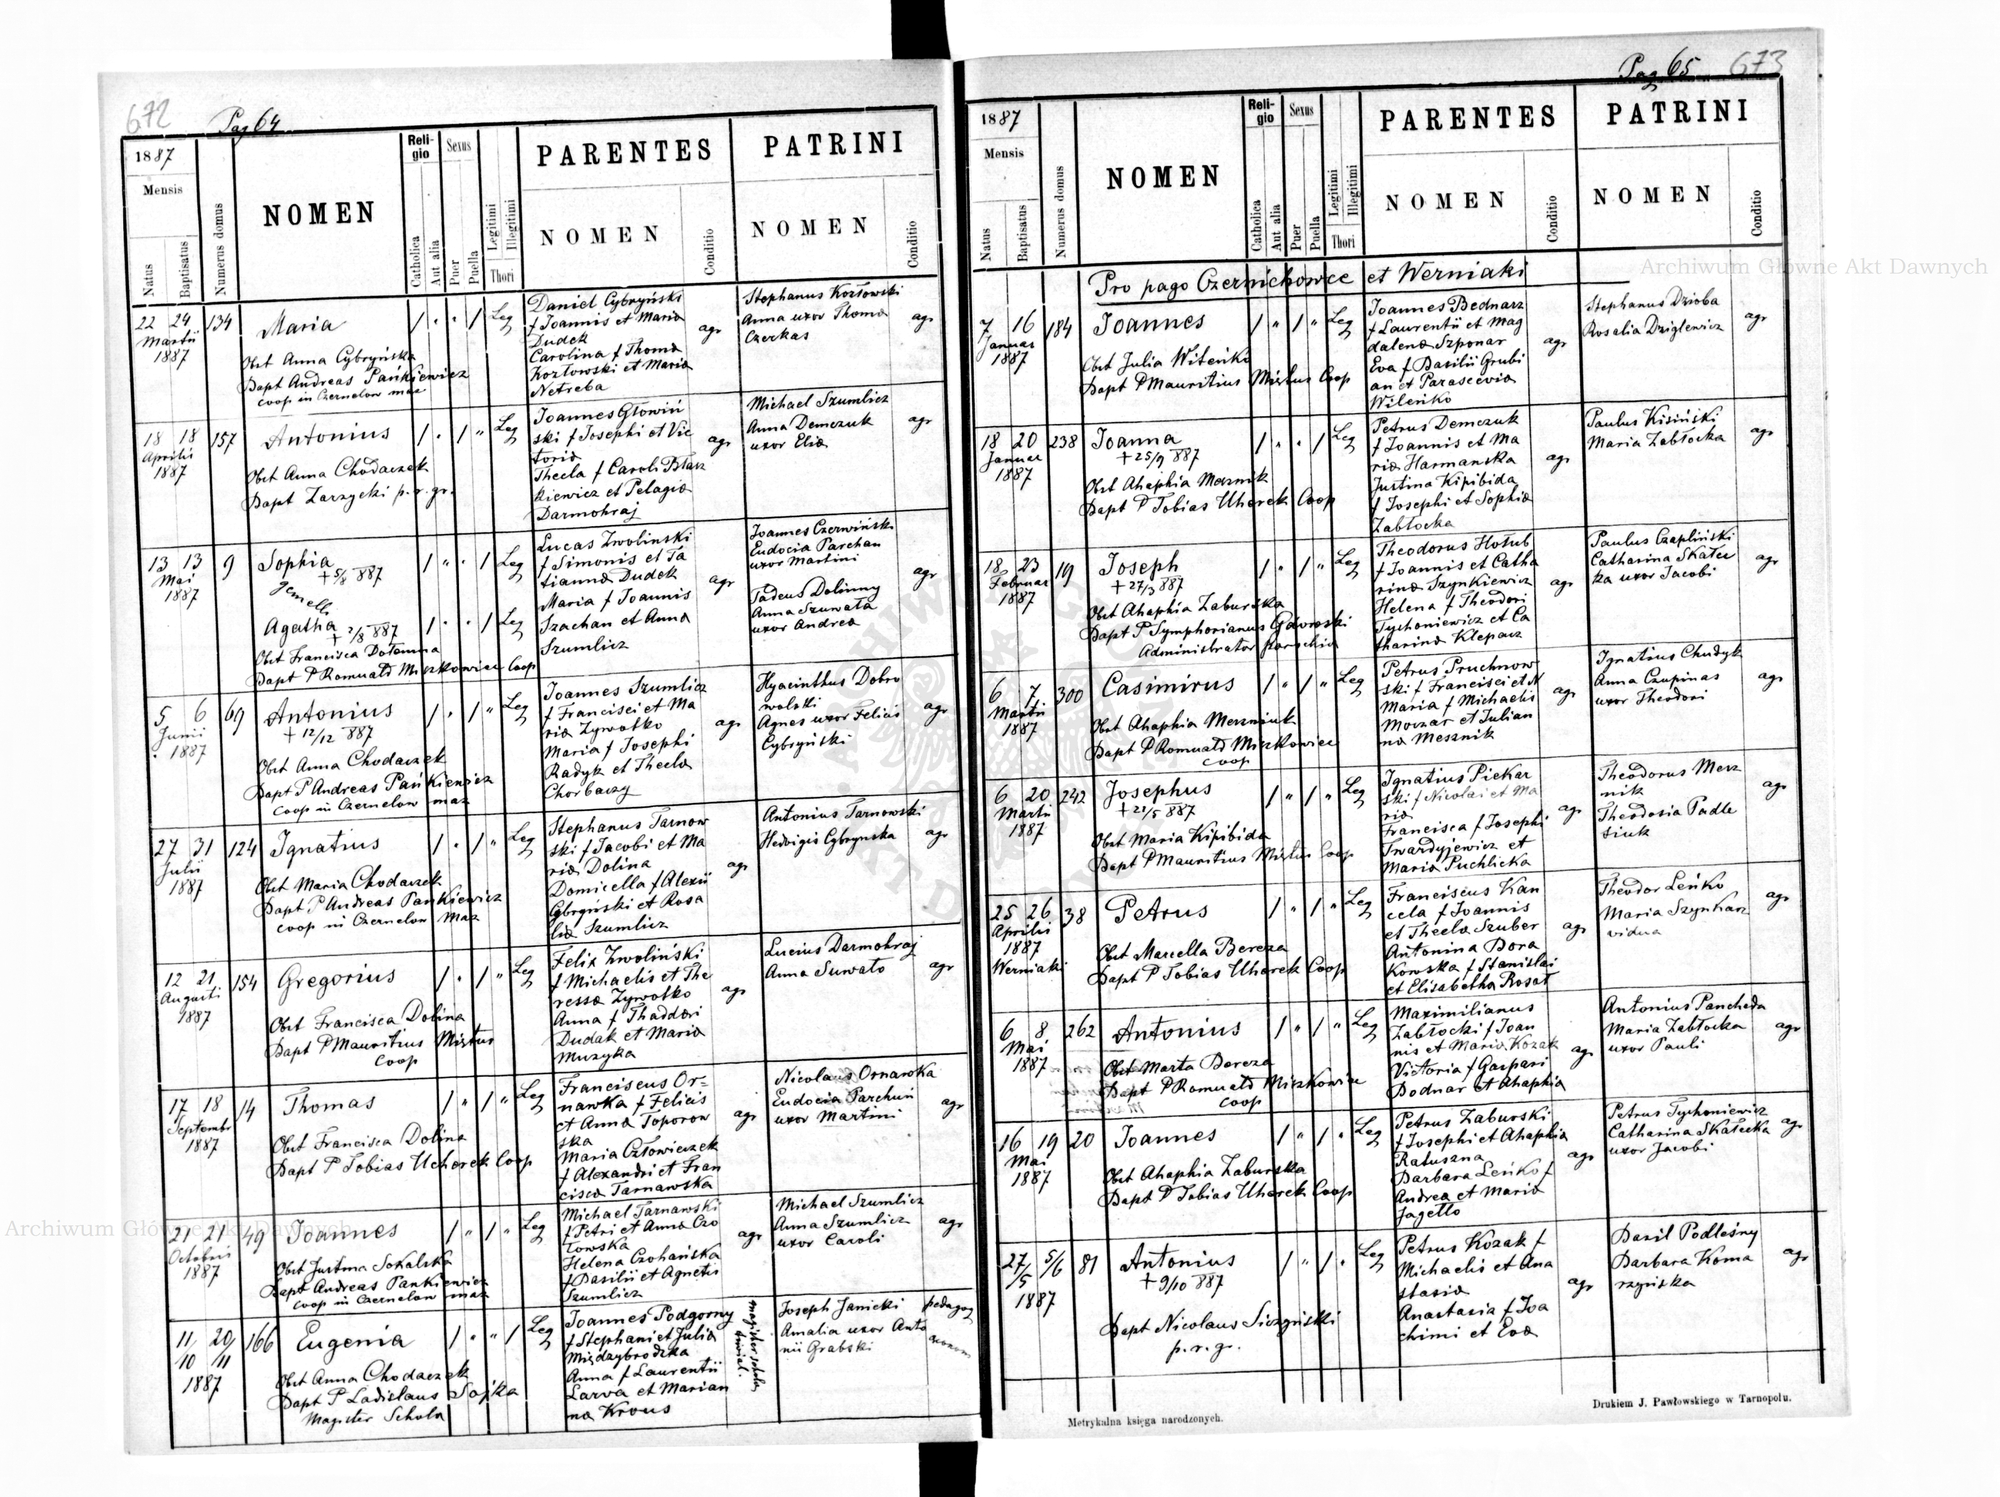 672
Pag 64
1887
Mensis
Natus
Baptisatus
Numerus domus
NOMEN
Reli-
gio
Catholica
Aut alia
Sexus
Puer
Puella
Legitimi
Illegitimi
Thori
PARENTES
NOMEN
Conditio
PATRINI
NOMEN
Conditio
22 24
Martii
1887
134
Maria
Obst Anna Cybryńska
Bapt Andreas Pańkiewicz
coop in Czernelow maz
Leg
Daniel Cybryński
f Joannis et Maria
Dudek
Carolina f Thoma
Kozłowski et Maria
Netreba
agr
Stephanus Kozłowski
Anna uxor Thoma
Czerkas
agr
18 18
Aprilis
1887
157
Antonius
Obst Anna Chodaczek
Bapt Zarzycki p. r. gr.
Leg
Joannes Głowiń
ski f Josephi et Vic
toria
Thecla f Caroli Błasz
kiewicz et Pelagia
Darmohraj
agr
Michael Szumlicz
Anna Demczuk
uxor Elia
agr
13 13
Mai
1887
9
Sophia
+ 5/8 887
Jemelli
Agatha
+ 2/8 887
Obst Francisca Dołomna
Bapt P Romuald Miszkowicz Coop
Leg
Leg
Lucas Zwolinski
f Simonis et Ta
tianna Dudek
Maria f Joannis
Szachan et Anna
Szumlicz
agr
Joannes Czerwiński
Eudocia Parchan
uxor Martini
Tadeus Dolinny
Anna Szuwała
uxor Andrea
agr
5 6
Junii
1887
69
Antonius
+ 12/12 887
Obst Anna Chodaczek
Bapt P Andreas Pańkiewicz
coop in Czernelow maz
Leg
Joannes Szumlicz
f Francisci et Ma
ria Zywotko
Maria f Josephi
Radyk et Thecla
Chorbaczy
agr
Hyacinthus Dobro
wolski
Agnes uxor Felicis
Cybryński
agr
27 31
Julii
1887
124
Ignatius
Obst Maria Chodaczek
Bapt P Andreas Pańkiewicz
coop in Czernelow Maz
Leg
Stephanus Tarnow
ski f Jacobi et Ma
ria Dolina
Domicella f Alexii
Cybryński et Rosa
lia Szumlicz
agr
Antonius Tarnowski
Hedvigis Cybrynska
agr
12 21
Augusti
1887
154
Gregorius
Obst Francisca Dolina
Bapt P Mauritius Mixtus
coop
Leg
Felix Zwoliński
f Michaelis et The
ressa Zywotko
Anna f Thaddai
Dudak et Maria
Muzyka
agr
Lucius Darmohraj
Anna Suwato
agr
17 18
Septembr
1887
14
Thomas
Obst Francisca Dolina
Bapt P Tobias Uchorek Coop
Leg
Franciscus Or=
nawka f Felicis
et Anna Toporow
ska
Maria Człowieczek
f Alexandri et Fran
cisca Tarnawska
agr
Nicolaus Ornawka
Eudocia Parchun
uxor Martini
agr
21 21
Octobris
1887
49
Joannes
Obst Justina Sokalska
Bapt Andreas Pankiewicz
coop in Czernelow maz
Leg
Michael Tarnawski
f Petri et Anna Czo
towska
Helena Czohańska
f Basilii et Agnetis
Szumlicz
agr
Michael Szumlicz
Anna Szumlicz
uxor Caroli
agr
11/10 20/11
1887
166
Eugenia
Obst Anna Chodaczek
Bapt P Ladislaus Sajka
Magister Schola
Leg
Joannes Podgorny
f Stephani et Julia
Międzybrodzka
Anna f Laurentii
Larva et Marian
na Kraus
magister schola
trivial.
Joseph Janicki
Amalia uxor Anto
nii Grabski
pedagog
Pag 65
673
1887
Mensis
Natus
Baptisatus
Numerus domus
NOMEN
Reli-
gio
Catholica
Aut alia
Sexus
Puer
Puella
Legitimi
Illegitimi
Thori
PARENTES
NOMEN
Conditio
PATRINI
NOMEN
Conditio
Pro pago Czernichowce et Werniaki
7 16
Januar
1887
184
Joannes
Obst Julia Witeńko
Bapt P Mauritius Mixtus Coop
Leg
Joannes Bednarz
f Laurentii et Mag
dalena Szponar
Eva f Basilii Grubi
an et Parascevia
Wileńko
agr
Stephanus Dzioba
Rosalia Dziglewicz
agr
18 20
Januar
1887
238
Joanna
+ 25/9 887
Obst Ahaphia Mesznik
Bapt P Tobias Uhorek Coop
Leg
Petrus Demczuk
f Joannis et Ma
ria Harmanska
Justina Kipibida
f Josephi et Sophia
Zabłocka
agr
Paulus Kisiński
Maria Zabłocka
agr
18 23
Februar
1887
19
Joseph
+ 27/3 887
Obst Ahaphia Zaburska
Bapt P Symphorianus Gdowski
Administrator parochia
Leg
Theodorus Hołub
f Joannis et Catha
rina Szynkiewicz
Helena f Theodori
Tychoniewicz et Ca
tharina Klepacz
agr
Paulus Czapliński
Catharina Skału
ka uxor Jacobi
agr
6 7
Martii
1887
300
Casimirus
Obst Ahaphia Meszniuk
Bapt P Romuald Miszkowicz
coop
Leg
Petrus Pruchnow
ski f Francisci et N
Maria f Michaelis
Moczar et Julian
na Mesznik
agr
Ignatius Chudyk
Anna Czupinas
uxor Theodori
agr
6 20
Martii
1887
242
Josephus
+ 21/5 887
Obst Maria Kipibida
Bapt P Mauritius Mixtus Coop
Leg
Ignatius Piekar
ski f Nicolai et Ma
ria
Francisca f Josephi
Twardyjewicz et
Maria Puchlicka
agr
Theodorus Mesz
nik
Theodosia Padle
siuk
agr
25 26
Aprilis
1887
Werniaki
38
Petrus
Obst Marcella Bereza
Bapt P Tobias Uhorek Coop
Leg
Franciscus Kan
cela f Joannis
et Thecla Szuber
Antonina Bora
kowska f Stanislai
et Elisabetha Rosoł
agr
Theodor Leńko
Maria Szynkarz
vidua
agr
6 8
Mai
1887
262
Antonius
Obst Marta Bereza
Bapt P Romuald Miszkowicz
coop
Leg
Maximilianus
Zabłocki f Joan
nis et Maria Kozak
Victoria f Gaspari
Bodnar et Ahaphia
agr
Antonius Pancheda
Maria Zabłocka
uxor Pauli
agr
16 19
Mai
1887
20
Joannes
Obst Ahaphia Zaburska
Bapt P Tobias Uhorek Coop
Leg
Petrus Zaburski
f Josephi et Ahaphia
Ratuszna
Barbara Leńko f
Andrea et Maria
Jagetto
agr
Petrus Tychoniewicz
Catharina Skałecka
uxor Jacobi
agr
27/5 5/6
1887
81
Antonius
+ 9/10 887
Bapt Nicolaus Siczyński
p. r. gr.
Leg
Petrus Kozak f
Michaelis et Ana
stasia
Anastasia f Joa
chimi et Eva
agr
Basil Podleśny
Barbara Koma
rzyńska
agr
Metrykalna księga narodzonych.
Drukiem J. Pawłowskiego w Tarnopolu.
Archiwum Główne Akt Dawnych
Archiwum Główne Akt Dawnych